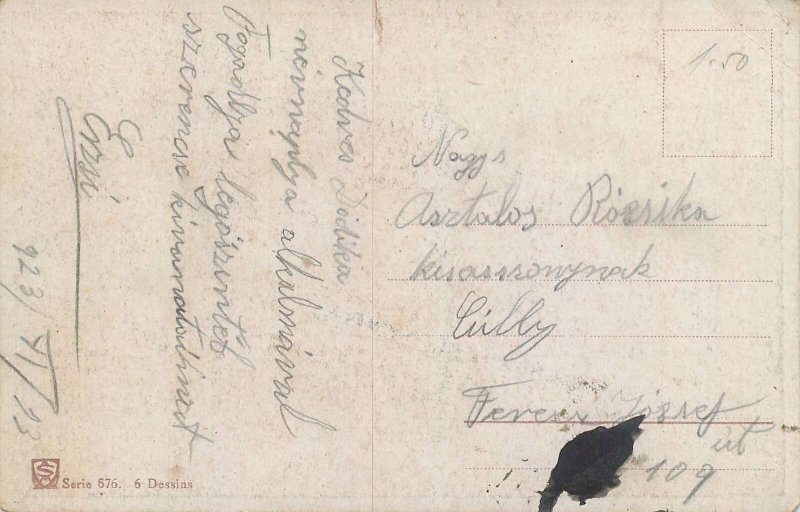 Kedves Dodika
névnapja alkalmával
Fogadja legőszintéb
szerencse kivánatodimat
Erzsi
923/VI/23
1.50
Nagys
Asztalos Rózsika
kisasszonynak
Cúlly
Ferenc József
út
109
Serie 676. 6 Dessins